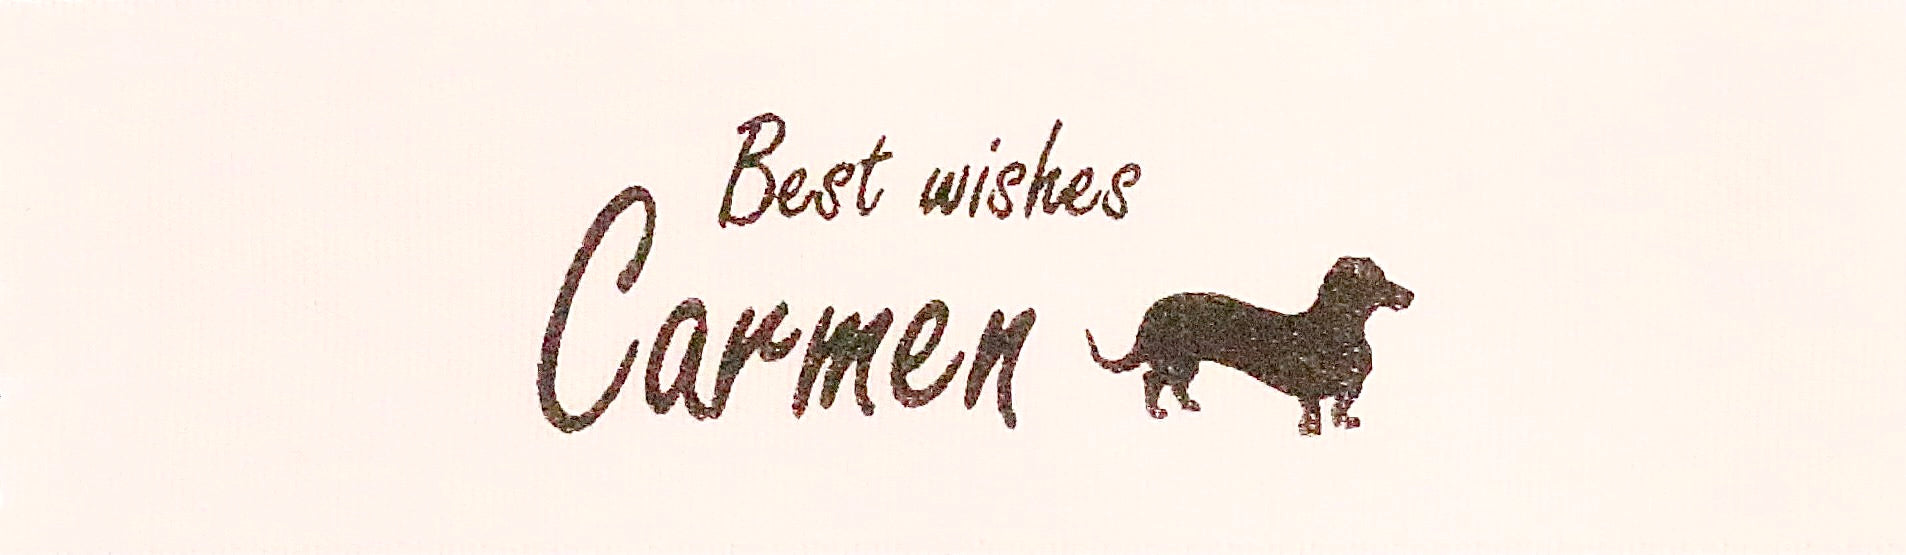 Best wishes
Carmen